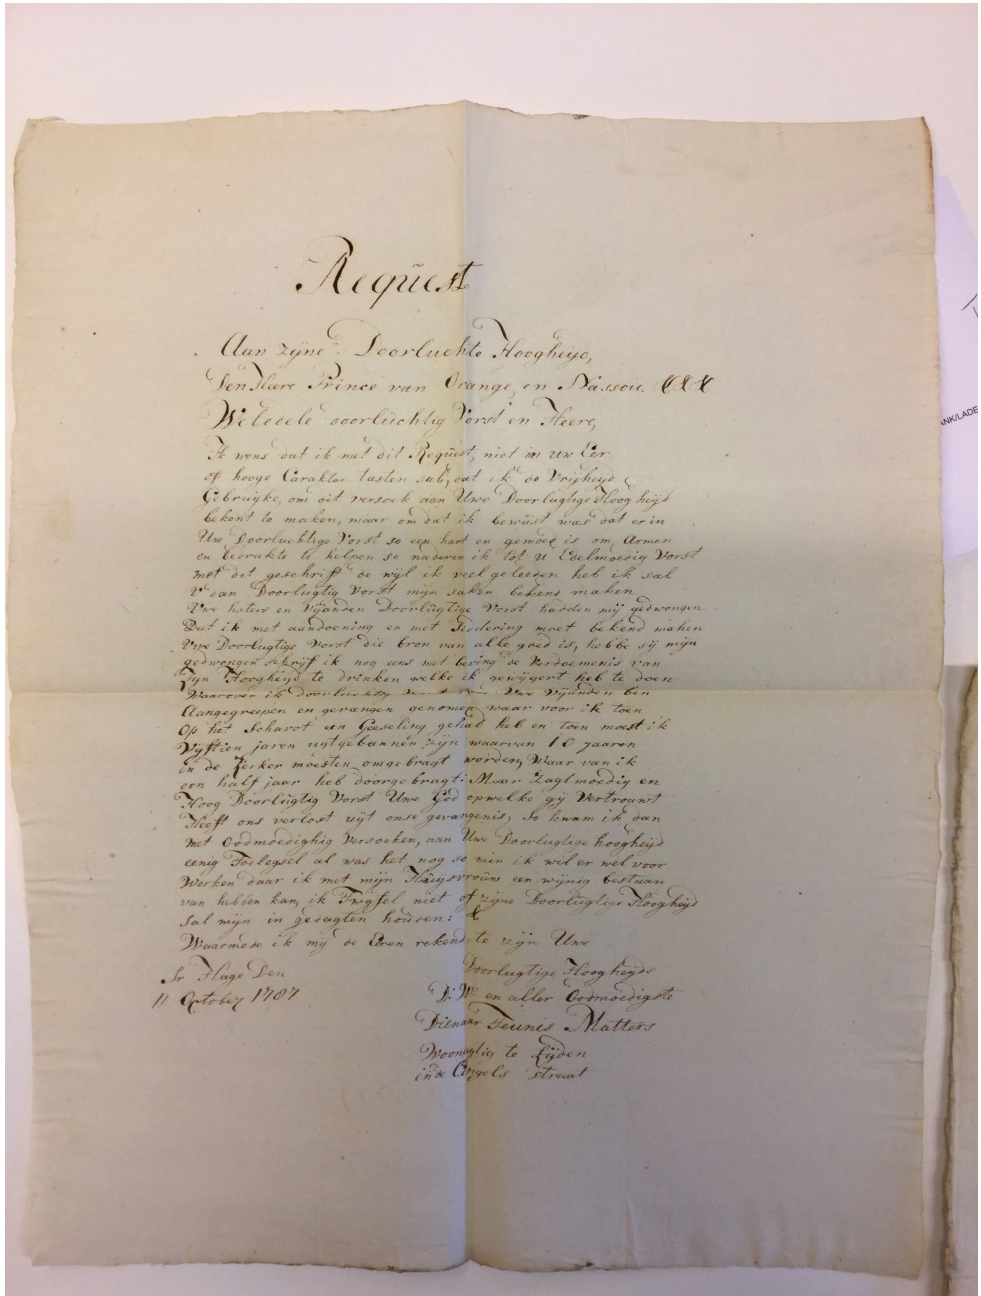 Request
Aan zijne Doorluchte Hoogheijd,
Den Heere Prince van Orange, en Nassoie. &&&
Weledele doorluchtig Vorst en Heere,
Ik wens dat ik met dit Request, niet in uw Eer
of hooge Carakter tasten sal, dat ik de Vrijheijd
Gebruijke, om dit versoek aan Uwe Doorlugtige Hoog heijd
bekent te maken, maar om dat ik bewust was dat er in
Uw Doorluchtige Vorst so een hart en gemoed is om Armen
en bedrukte te helpen so naderen ik tot u Edelmoedig Vorst
met dit geschrift de wijl ik veel geleeden heb ik sal
U dan Doorlugtig Vorst mijn saken bekent maken
Uwe haters en Vijanden Doorlugtige Vorst hadden mij gedwongen
Dat ik met aandoening en met Siddering moet bekend maken
Uwe Doorlugtige Vorst die bron van alle goed is, hebbe sij mijn
gedwongen schrijf ik nog eens met beving de Verdoemenis van
Zijn Hoogheijd te drinken welke ik gewijgert heb te doen
Waarover ik doorluchtig Vorst Uwe Vijanden ben
Aangegreepen en gevangen genomen waar voor ik toen
Op het Schavot een Geeseling gehad heb en toen moest ik
Vijftien jaren uijtgebannen zijn waarvan 10 jaaren
in de Kerker moesten omgebragt worden, Waar van ik
een half jaar heb doorgebragt: Maar Zagtmoedig en
Hoog Doorlugtig Vorst Uwe God opwelke gij Vertrouwt
Heeft ons verlost uijt onse gevangenis, so kwam ik dan
met Oodmoedighig Versoeken, aan Uwe Doorlugtige hoogheijd
eenig Toelegsel al was het nog so min ik wil er wel voor
Werken daar ik met mijn Huijsvrouw een wijnig bestaan
van hebben kan, ik Twijfel niet of zijne Doorlugtige Hoogheijd
Sal mijn in gedagten houden: &
Waarmede ik mij de Eeren rekend te zijn Uwe
Doorlugtige Hoogheijds
Sr Hage Den
11 October 1787
D: W: en aller Oodmoedigste
Dienaar Teunis Matters
Woonagtig te Lijden
in de Cingels straat
ANK/LADE